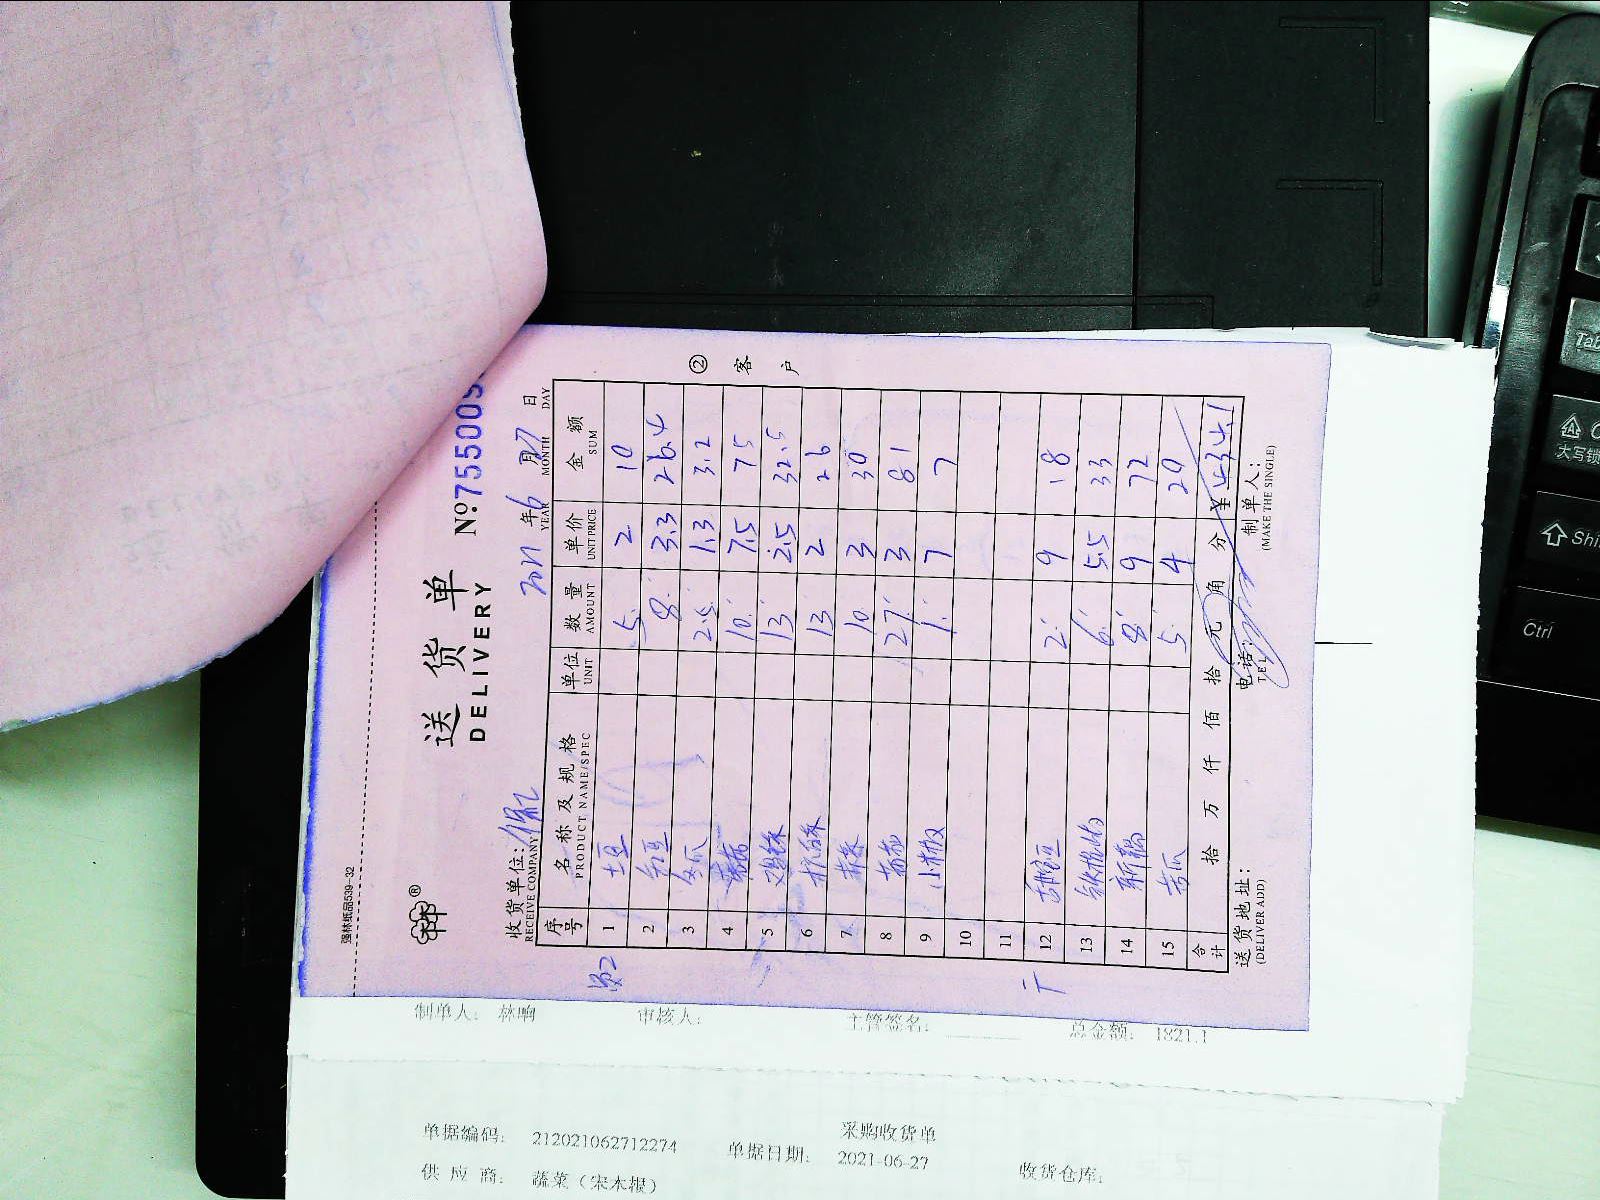 强林纸品539-32
送货单
DELIVERY
№755009
②客户
收货单位:
RECEIVE COMPANY
2021年6月27日
YEAR MONTH DAY
序号 名称及规格 单位 数量 单价 金额
PRODUCT NAME/SPEC UNIT AMOUNT UNIT PRICE SUM
1 土豆 5 2 10
2 8 3.3 26.4
3 冬瓜 2.5 1.3 3.2
4 10 7.5 75
5 13 2.5 32.5
6 13 2 26
7 10 3 30
8 27 3 81
9 小米椒 1 7 7
10
11
12 2 9 18
13 6 5.5 33
14 8 9 72
15 苦瓜 5 4 20
合计 拾 万 仟 佰 拾 元 角 分 ¥434.1
送货地址: 电话: 制单人:
(DELIVER ADD) TEL (MAKE THE SINGLE)
制单人: 林响 审核人: 主管签名: 总金额: 1821.1
采购收货单
单据编码: 212021062712274 单据日期: 2021-06-27 收货仓库:
供应商: 蔬菜(宋本根)
Tab
大写锁
Shi
Ctrl